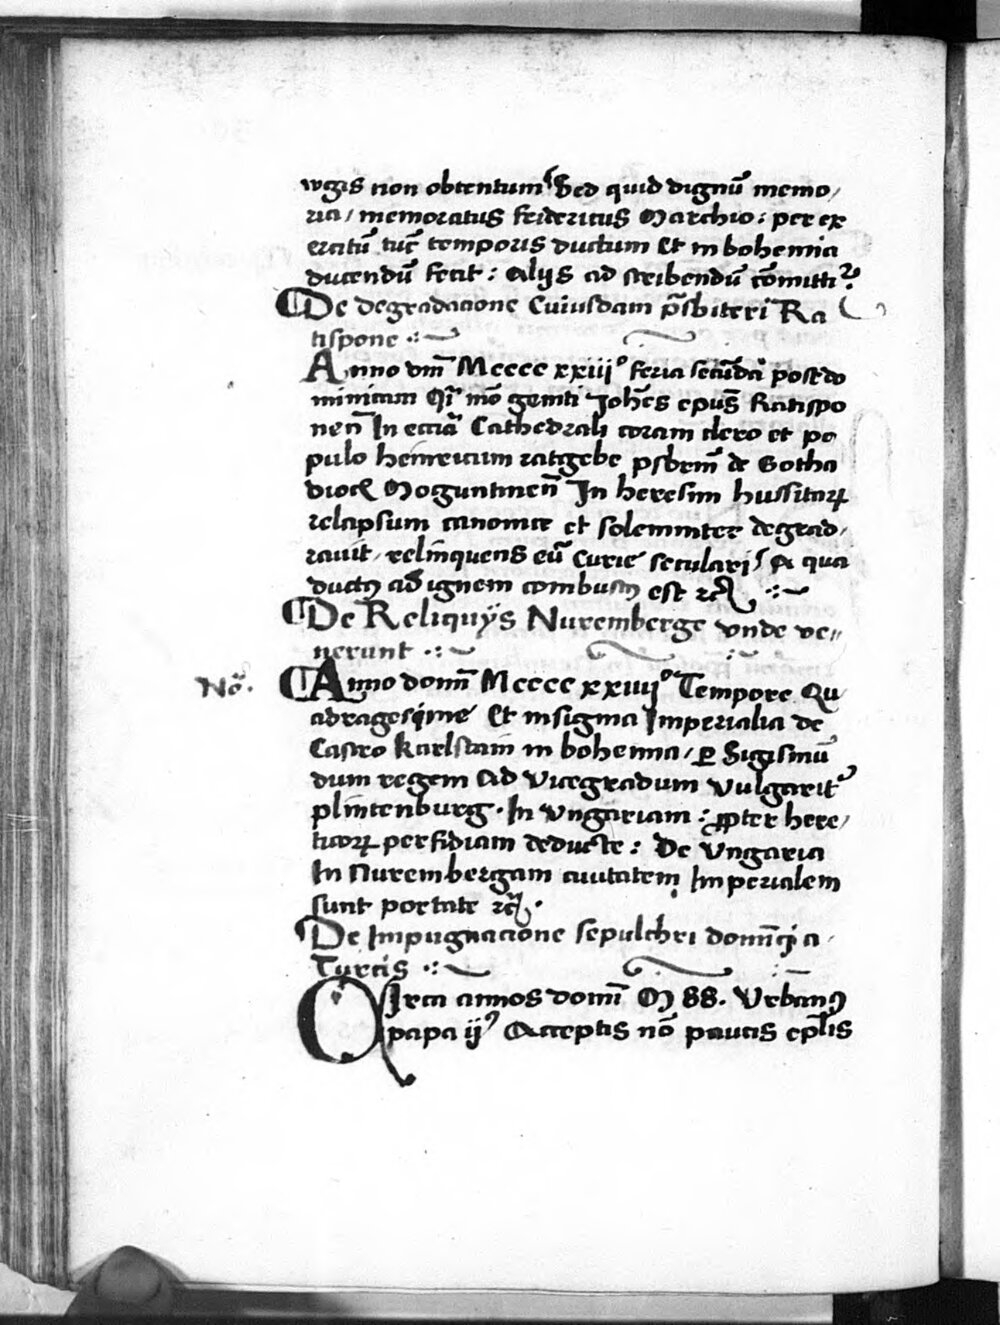 wgis non obtentum Sed quid dignū memo/
ria/ memoratus fridericus Marchio : per ex
ercitū tūc temporis ductum Et in bohemia
ducendū fecit : Alijs ad scribendū cōmitti?
De degradacione Cuiusdam p̄sbiteri Ra
tispone
Anno dn̄i Mcccc xxiiijº feria secūda post do
minicam Qī mō geniti Joh̄es ep̄us Ratispo
nen̄ In ecc̄ia Cathedrali coram clero et po
pulo heinricum ratgebe psb̄rm̄ de Gotha
dioc̄ Moguntinen̄ In heresim hussitaꝝ
relapsum canonice et solemniter degrad/
rauit relinquens eū Curie seculari A qua
ductꝯ ad ignem combustꝯ est ⁊c̄
De Reliquijs Nuremberge vnde ve//
nerunt
Nō.
Anno domī Mcccc xxiiijº Tempore Qu
adragesime Et insignia Imperialia de
Castro Karlstain in bohemia / ꝑ Sigismū
dum regem Ad Vicegradum Vulgarit̄
plintenburg. In Vngariam : ꝓpter here/
ticoꝝ perfidiam deducte : De Vngaria
In Nurembergam ciuitatem Imperialem
sunt portate ⁊c̄.
De Impugnacione sepulchri domīci a
Turcis
Circa annos domī M 88. Vrbanꝯ
papa ijꝯ Acceptis nō paucis ep̄lis